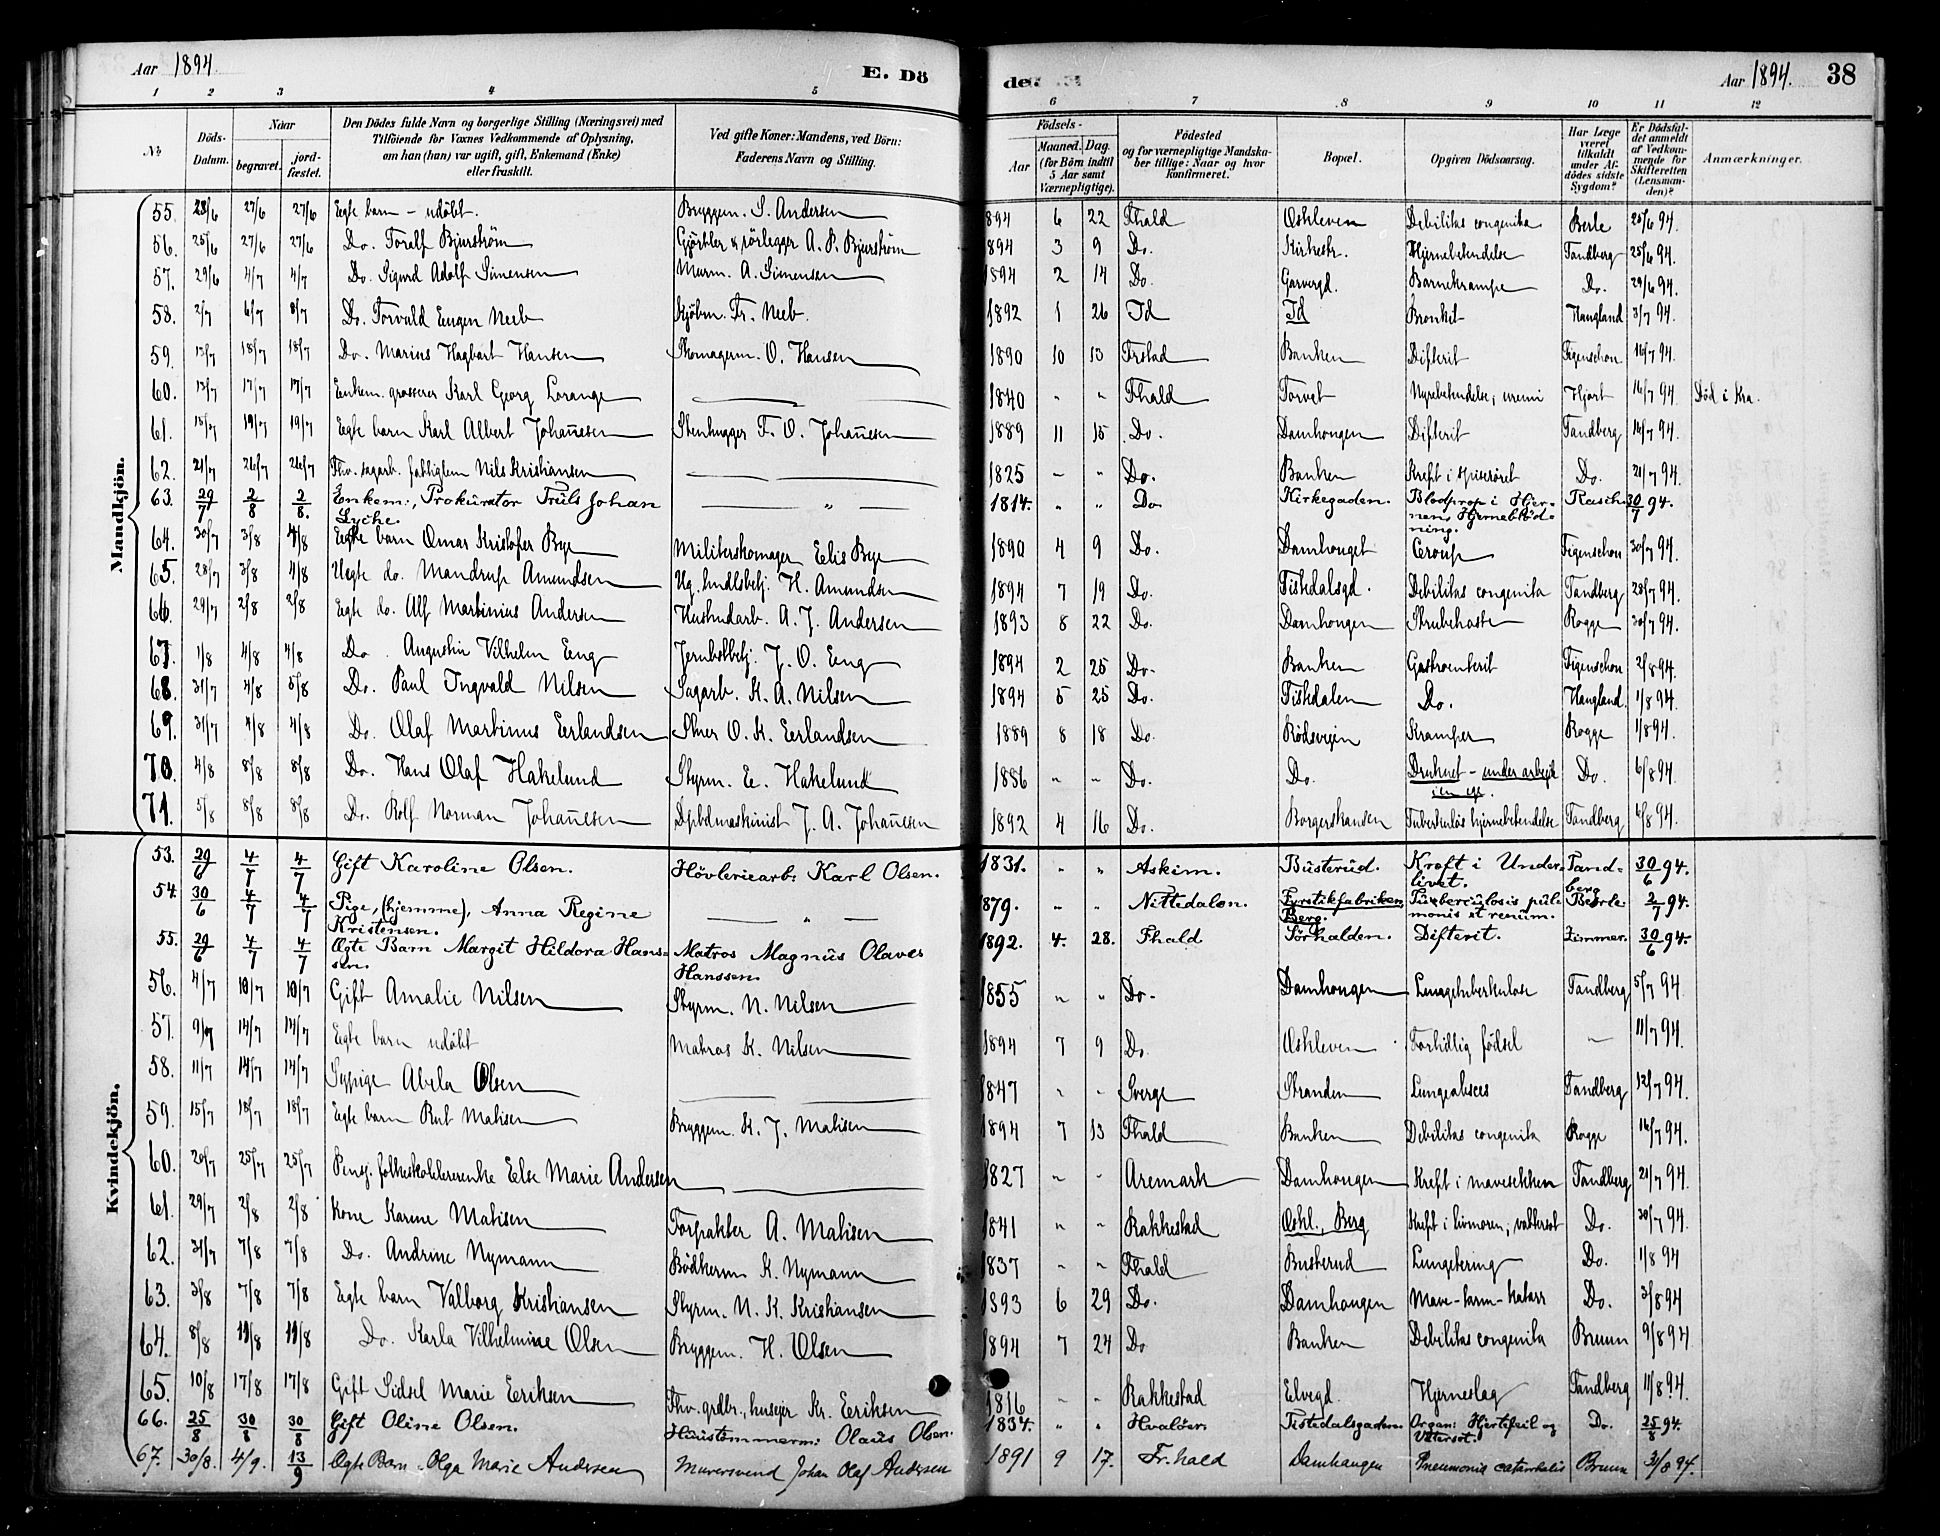 Aar 1894. E. Dö de. Aar 1894. 38
1 2 3 4 5 6 7 8 9 10 11 12
No Döds-Datum. Naar begravet. jord-fæstet. Den Dödes fulde Navn og borgerlige Stilling (Næringsvei) med Tilföiende for Voxnes Vedkommende af Oplysning, om han (hun) var ugift, gift, Enkemand (Enke) eller fraskilt. Ved gifte Koner: Mandens, ved Börn: Faderens Navn og Stilling. Födsels- Aar Maaned. Dag. (for Börn indtil 5 Aar samt Værnepligtige). Födested og for værnepligtige Mandskaber tillige: Naar og hvor konfirmeret. Bopæl. Opgiven Dödsaarsag. Har Læge været tilkaldt under Afdödes sidste Sygdom? Er Dödsfaldet anmeldt af Vedkommende for Skifteretten (Lensmanden)? Anmærkninger.
Mandkjön.
55. 23/6 27/6 27/6 Egte barn – udöbt. Bryggem. S. Andersen 894 6 22 Fhald Oskleven Debilitas congenita Berle 25/6 94.
56. 25/6 27/6 27/6 Do. Toralf Bjurström Gjörtler & rörlegger A. P. Bjurström 894 3 9 Do. Kirkestr. Hjernebetendelse Tandberg 25/6 94.
57. 29/6 4/7 4/7 Do. Sigurd Adolf Simensen Murm. A. Simensen 1894 2 14 Do. Garvergd. Barnekrampe Do. 29/6 94.
58. 2/7 6/7 8/7 Do. Torvald Eugen Neeb Kjöbm. Fr. Neeb. 1892 1 26 Id Id Bronkit Haugland 3/7 94.
59. 13/7 18/7 18/7 Do. Marius Hagbart Hansen Skomagerm. O. Hansen 1890 10 13 Frstad Banken Difterit Figenschou 16/7 94.
60. 13/7 17/7 17/7 Enkem. grosserer Karl Georg Lorange 1840 " " Fhald Torvet Nyrebetendelse; uremi Hjort 16/7 94. Död i Kra.
61. 15/7 19/7 19/7 Egte barn Karl Albert Johannesen Stenhugger F. O. Johannesen 1889 11 15 Do. Damhougen Difterit Tandberg 16/7 94.
62. 21/7 26/7 26/7 Fhv. sagarb. fattiglem Nils Kristiansen 1825 " " Do. Banken Kreft i spiseröret Do. 21/7 94.
63. 29/7 2/8 2/8. Enkem:, Prokurator Truls Johan Lyche. " 1814. " " Do Kirkegaden. Blodprop i Hjernen, Hjerneblödning. Rasch 30/7 94.
64. 30/7 3/8 4/8 Egte barn Omar Kristofer Bye Militerskomager Elis Bye 1890 4 9 Do. Damhouget Croup Figenschou 30/7 94.
65. 28/7 3/8 4/8 Uegte do. Mandrup Amundsen Ug. hndlsbetj. H. Amundsen 1894 7 19 Do. Tistedalsgd. Debilitas congenita Tandberg 28/7 94.
66. 29/7 2/8 2/8 Egte do. Alf Martinius Andersen Hustmdarb. A. J. Andersen 1893 8 22 Do. Damhougen Strubehoste Rogge 30/7 94.
67. 1/8 4/8 4/8 Do. Augustin Vilhelm Eng Jernbbetj. J. O. Eng 1894 2 25 Do. Banken Gastroenterit Figenschou 2/8 94.
68. 31/7 4/8 5/8 Do. Paul Ingvald Nilsen Sagarb. K. A. Nilsen 1894 5 25 Do. Tistedalen Do. Haugland. 1/8 94.
69. 31/7 4/8 4/8 Do. Olaf Martinus Erlandsen Skner O. K. Erlandsen 1889 8 18 Do. Rödsveien Kramper Rogge 1/8 94.
70. 4/8 8/8 8/8 Do. Hans Olaf Hakelund Styrm. E. Hakelund 1886 " " Do. Do. Druknet – under arbeide Do. 6/8 94.
71. 5/8 8/8 8/8 Do. Rolf Norman Johannesen Dpbdmaskinist J. A. Johannesen 1892 4 16 Do. Borgerskansen Tuberkulös hjernebetendelse Tandberg 6/8 94.
Kvindekjön.
53. 29/6 4/7 4/7 Gift Karoline Olsen. Hövleriearb: Karl Olsen. 1831. " " Askim. Busterud. Kreft i Underlivet. Tandberg 30/6 94.
54. 30/6 4/7 4/7 Pige, (hjemme), Anna Regine Kristensen. " 1879. " " Nittedalen. Fyrstikfabriken, Berg. Tuberculosis pulmonis et renum. Beerle. 2/7 94.
55. 29/6 4/7 4/7 Ægte Barn Margit Hildora Hanssen. Matros Magnus Olaves Hanssen. 1892. 4. 28. Fhald Sörhalden. Difterit. Zimmer. 30/6 94.
56. 4/7 10/7 10/7 Gift Amalie Nilsen Styrm. N. Nilsen 1855 " " Do. Damhougen Lungetuberkulose Tandberg 5/7 94.
57. 9/7 14/7 14/7 Egte barn udöbt Matros K. Nilsen 1894 7 9 Do. Oskleven Fortidlig födsel – 11/7 94.
58. 11/7 14/7 14/7 Sypige Abela Olsen 1847 " " Sverge Stranden Lungeabsces Tandberg 12/7 94.
59. 15/7 18/7 18/7 Egte barn Rut Matisen Bryggem. K. J. Matisen 1894 7 13 Fhald Banken Debilitas congenita Rogge 16/7 94.
60. 20/7 25/7 25/7 Pensj. folkeskolelererenke Else Marie Andersen 1827 " " Aremark Damhougen Kreft i mavesekken Tandberg 21/7 94.
61. 29/7 2/8 2/8 Kone Karine Matisen Forpakter A. Matisen 1841 " " Rakkestad Oskl., Berg Kreft i livmoren; vattersot Do. 30/7 94.
62. 31/7 7/8 7/8 Do. Andrine Nymann Bödkerm K. Nymann 1837 " " Fhald Busterud Lungetering Do. 1/8 94
63. 3/8 7/8 7/8 Egte barn Valborg Kristiansen Styrm. N. K. Kristiansen 1893 6 29 Do. Damhougen Mave-tarm-katarr Do. 3/8 94
64. 8/8 19/8 19/8 Do. Karla Vilhelmine Olsen Bryggem. H. Olsen 1894 7 24 Do Banken Debilitas congenita Bruun 9/8 94.
65. 10/8 17/8 17/8 Gift Sidsel Marie Eriksen Fhv. grdbr., husejer Kr. Eriksen 1816 " " Rakkestad Elvegd. Hjerneslag Tandberg 11/8 94.
66. 25/8 30/8 30/8 Gift Oline Olsen. Huustömmerm: Olaus Olsen. 1834. " " Hvalöer. Tistedalsgaden. Organ: Hjertefeil og Vatersot. Do. 25/8 94.
67. 30/8. 4/9. 13/9 Ægte Barn Olga Marie Andersen Murersvend Johan Olaf Andersen 1891 9 17. Fr.hald Damhaugen Pneumonia catarrhalis Bruun 31/8 94.